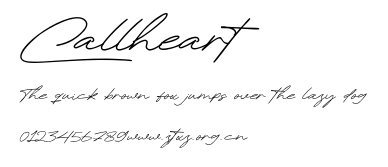 Callheart
The quick brown fox jumps over the lazy dog
0123456789www.ztxz.org.cn